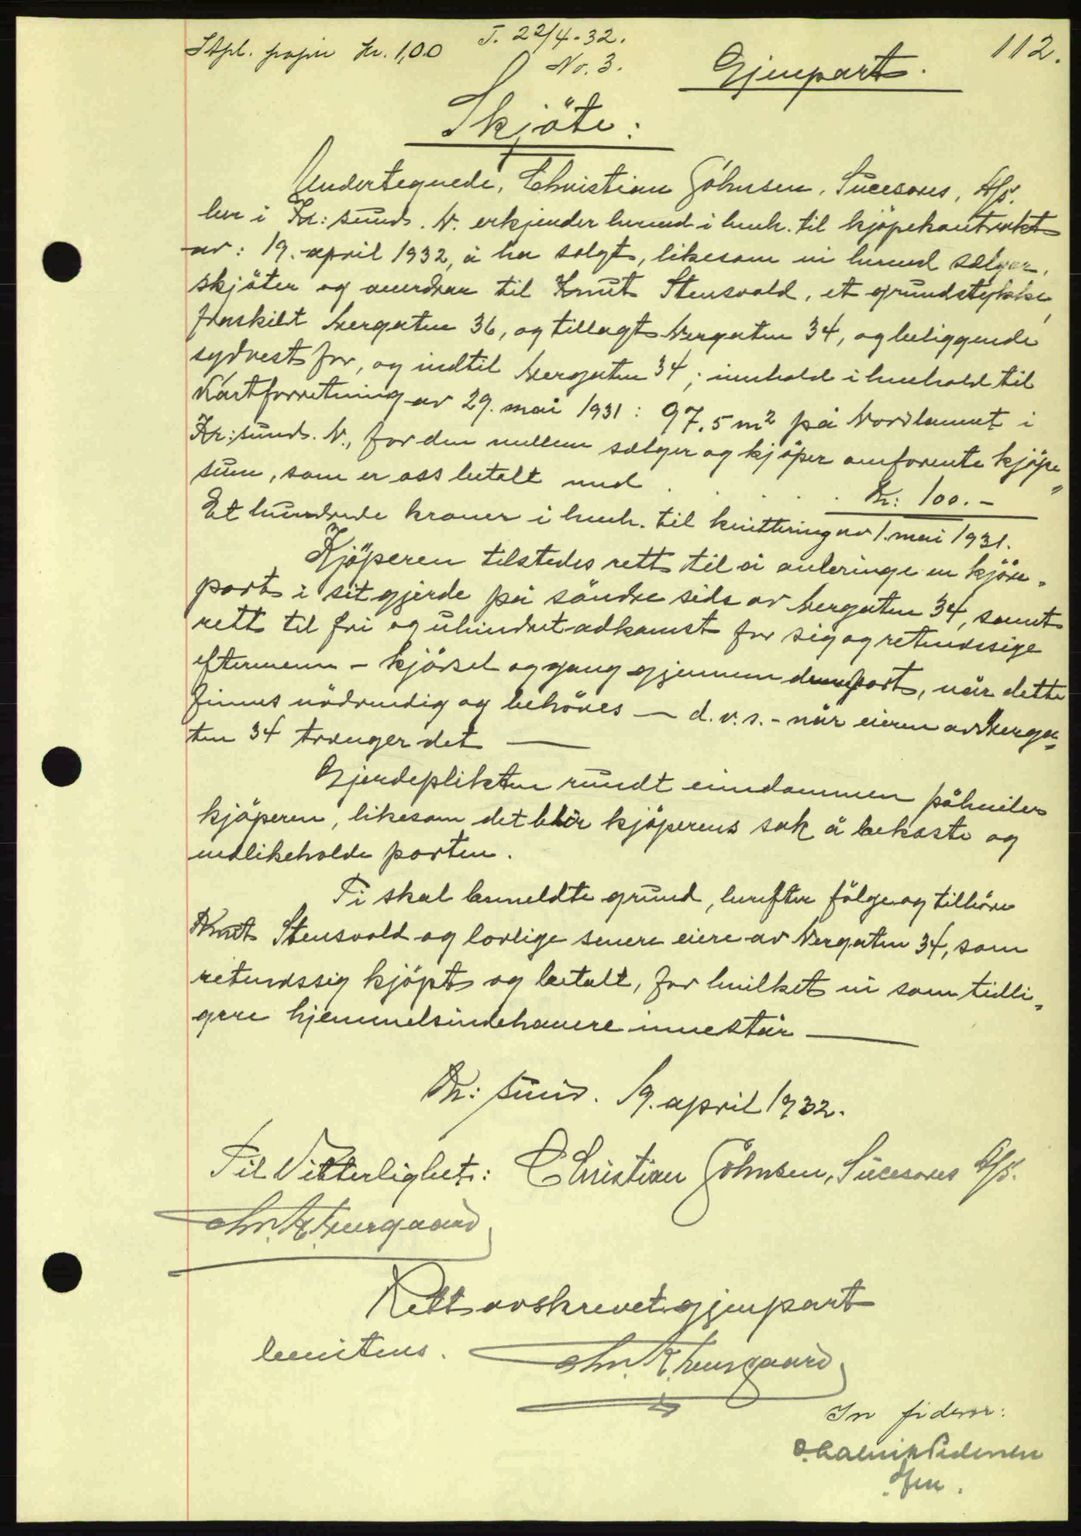 Stpl. papir Kr. 1,00
T. 22/4-32.
No. 3.
112.
Gjenpart.
Skjöte:
Undertegnede, Christian Johnsen, Sucesores, A/S.
her i Kr:sund. N. erkjender herved i henh. til kjöpekontrakt
av: 19. april 1932, å ha solgt, likesom vi herved sælger,
skjöter og overdrar til Knut Stensvold, et grundstykke,
fraskilt Vergaten 36, og tillagt Vergaten 34, og beliggende
sydvest for, og indtil Vergaten 34; innhold i henhold til
Kartforretning av 29. mai 1931: 97.5 m² på Nordlannet i
Kr:sund. N., for den mellem sælger og kjöper omforente kjöpe"
sum, som er oss betalt med . . . . . Kr: 100.-
Et hundrede kroner i henh. til kvittering av 1. mai 1931.
Kjöperen tilstedes rett til å anbringe en kjöre-
port i sit gjerde på söndre side av Vergaten 34, samt
rett til fri og uhindret adkomst for sig og retmessige
eftermenn - kjörsel og gang gjennem den port, når dette
finnes nödvendig og behöves - d.v.s. - når eieren av Verga-
ten 34 trænger det —
Gjerdeplikten rundt eiendommen påhviler
kjöperen, likesom det blir kjöperens sak å bekoste og
vedlikeholde porten.
Ti skal bemeldte grund, herefter fölge og tilhöre
Knut Stensvold og lovlige senere eiere av Vergaten 34, som
retmessig kjöpt og betalt, for hvilket vi som tidli-
gere hjemmelsindehavere innestår —
Kr: sund. 19. april 1932.
Til Vitterlighet: Christian Johnsen, Sucesores A/S.
Chr. K.
Rett avskrevet gjenpart
bevitnes. Chr. K.
In fidem:
Pedersen